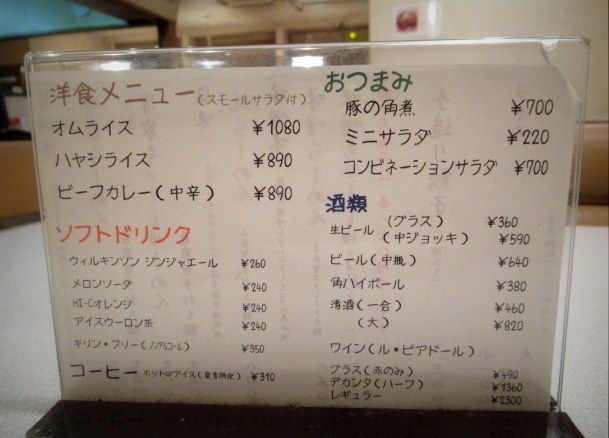 洋食メニュー(スモールサラダ付)
オムライス ¥1080
ハヤシライス ¥890
ビーフカレー(中辛) ¥890
ソフトドリンク
ウィルキンソン ジンジャエール ¥260
メロンソーダ ¥240
HI-Cオレンジ ¥240
アイスウーロン茶 ¥240
キリン・フリー(ノンアルコール) ¥350
コーヒー ホットorアイス(夏季限定) ¥310
おつまみ
豚の角煮 ¥700
ミニサラダ ¥220
コンビネーションサラダ ¥700
酒類
生ビール (グラス) ¥360
(中ジョッキ) ¥590
ビール(中瓶) ¥640
角ハイボール ¥380
清酒(一合) ¥460
(大) ¥820
ワイン(ル・ピアドール)
グラス(赤のみ) ¥490
デカンタ(ハーフ) ¥1360
レギュラー ¥2300